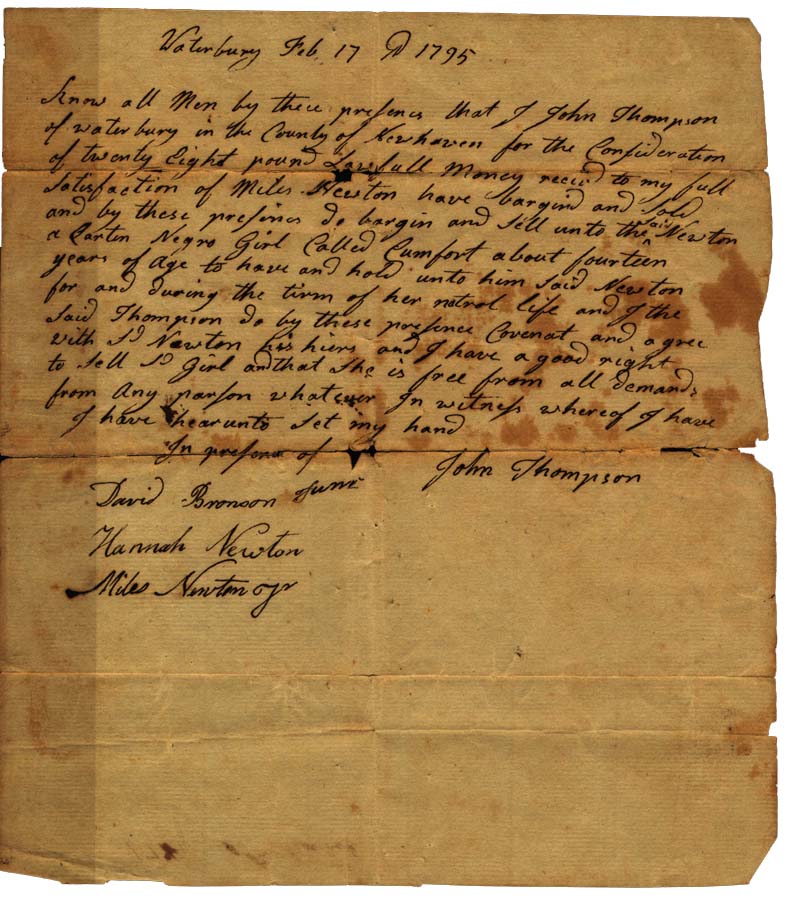 Waterbury Feb 17 AD 1795
Know all Men by these presence that I John Thompson
of waterbury in the County of Newhaven for the Consideration
of twenty Eight pound Lawfull Money receivd to my full
Satisfaction of Miles Newton have bargind and Sold
and by these presence do bargin and Sell unto the said Newton
a Cartin Negro Girl Called Cumfort about fourteen
years of Age to have and hold unto him Said Newton
for and during the tirm of her natrol life and I the
Said Thompson do by these presence Covenat and agree
with Sd Newton his hiers and I have a good right
to Sell Sd Girl and that She is free from all demands
from Any parson whatever In witness whereof I have
I have hearunto Set my hand
In presence of
John Thompson
David Bronson Junr
Hannah Newton
Miles Newton Jr